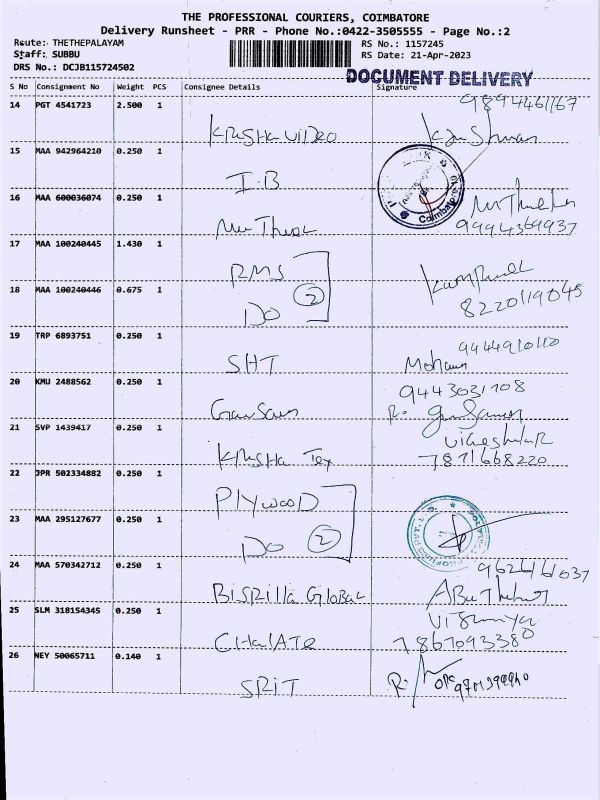 THE PROFESSIONAL COURIERS, COIMBATORE
Delivery Runsheet - PRR - Phone No.:0422-3505555 - Page No.:2
Route: THETHEPALAYAM RS No.: 1157245
Staff: SUBBU RS Date: 21-Apr-2023
DRS No.: DCJB115724502
DOCUMENT DELIVERY
S No Consignment No Weight PCS Consignee Details Signature
9894461767
14 PGT 4541723 2.500 1
KRISHA VIDEO
15 MAA 942964210 0.250 1
I.B
Coimbatore
16 MAA 600036074 0.250 1
9994369937
17 MAA 100240445 1.430 1
RMS
18 MAA 100240446 0.675 1
DO 2
8220119045
19 TRP 6893751 0.250 1
SHT
9444910110
Mohan
20 KMU 2488562 0.250 1
9443031708
21 SVP 1439417 0.250 1
KRISHA Tex
7871668220
22 JPR 502334882 0.250 1
PLYWOOD
23 MAA 295127677 0.250 1
DO 2
24 MAA 570342712 0.250 1
9626161037
GLOBAL
25 SLM 318154345 0.250 1
7867093380
26 NEY 50065711 0.140 1
SRIT